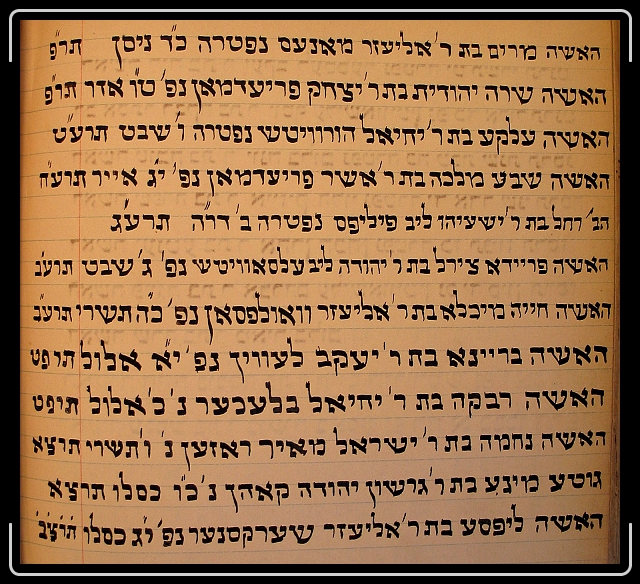 האשה מרים בת ר' אליעזר מאנעס נפטרה כ"ד ניסן תר"פ
האשה שרה יהודית בת ר' יצחק פריעדמאן נפ' ט"ו אדר תר"פ
האשה עלקע בת ר' יחיאל הורוויטש נפטרה ו' שבט תרע"ט
האשה שבע מלכה בת ר' אשר פריעדמאן נפ' י"ג אייר תרע"ח
הב' רחל בת ר' ישעיהו ליב פיליפס נפטרה ב' דר"ה תרע"ג
האשה פריידא צירל בת ר' יהודה ליב עלסאוויטש נפ' ג' שבט תרע"ב
האשה חייה מיכלא בת ר' אליעזר וואולפסאן נפ' כ"ה תשרי תרע"ב
האשה בריינא בת ר' יעקב לעוויך נפ' י"א אלול תיפט
האשה רבקה בת ר' יחיאל בלעכער נ' כ' אלול תיפט
האשה נחמה בת ר' ישראל מאיר ראזען נ' ו' תשרי תרצא
גוטע מינע בת ר' גרשון יהודה קאהן נ' כ"ו כסלו תרצא
האשה ליפסע בת ר' אליעזר שערקסנער נפ' י"ג כסלו תרצב